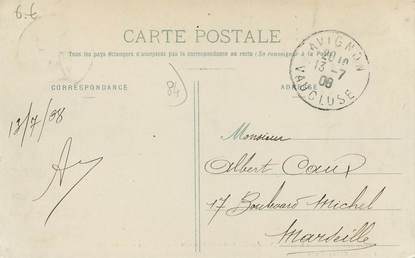 6.€
CARTE POSTALE
Tous les pays étrangers n'acceptent pas la correspondance au recto (Se renseigner à la Poste)
AVIGNON
20 10
13-7
08
VAUCLUSE
CORRESPONDANCE
84
ADRESSE
13/7/08
Monsieur
Albert Caux
17 Boulevard Michel
Marseille